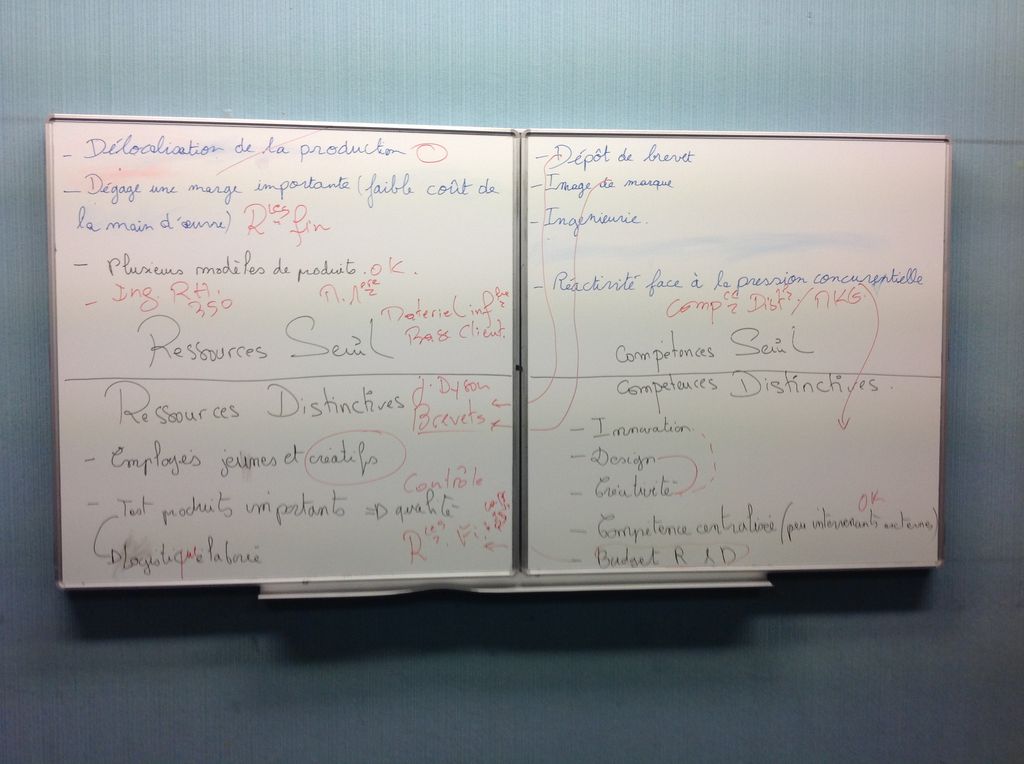 - Délocalisation de la production
- Dégage une marge importante (faible coût de
la main d'œuvre) R ces fin
- Plusieurs modèles de produits. OK.
- Ing. R.H.
350
Materiel inf
Base Client.
Ressources Seuil
Ressources Distinctives
J. Dyson
Brevets
- Employés jeunes et créatifs
Contrôle
- Test produits importants => qualité
Logistique élaborée
- Dépôt de brevet
- Image de marque
- Ingénieurie.
- Réactivité face à la pression concurentielle
Comp ces Dist / MKG.
Compétences Seuil
Competences Distinctives.
- Innovation
- Design
- Créativité
OK
- Compétence centralisée (peu intervenants externes)
- Budget R & D